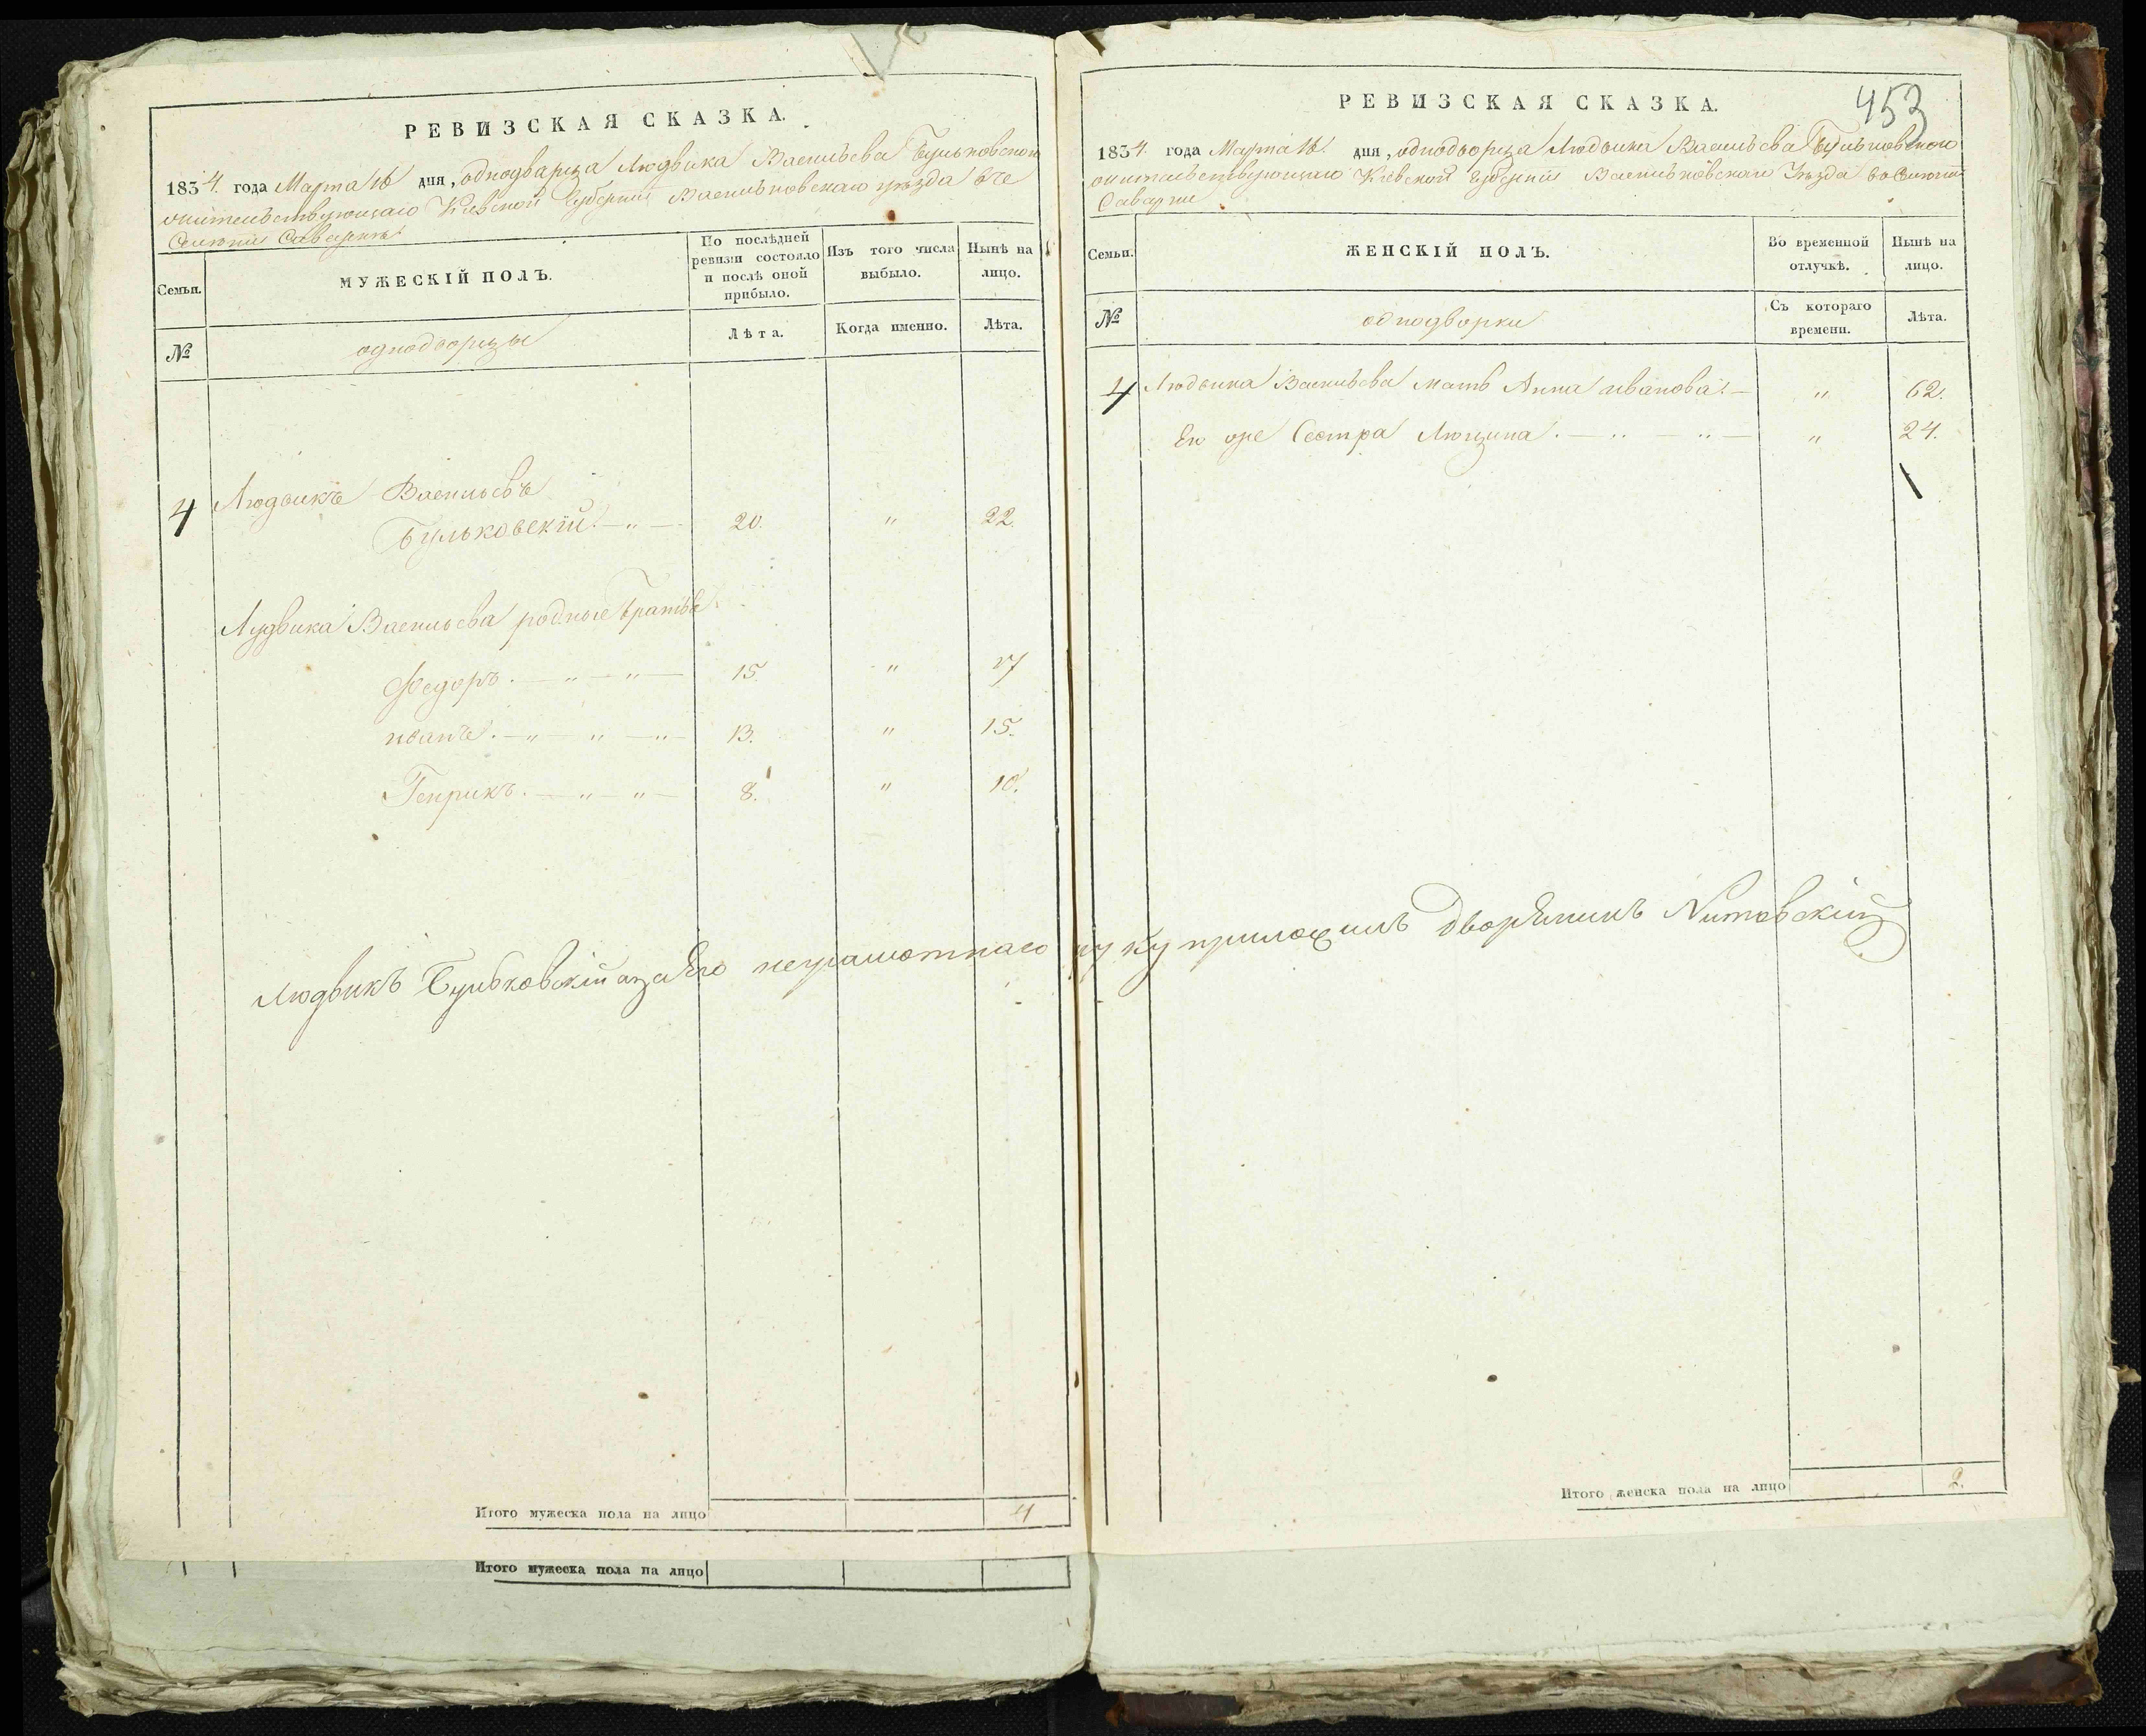 РЕВИЗСКАЯ СКАЗКА.
1834. года Марта 16 дня, однодварца Людвика Васильева Бульковского
жительствующаго Кіевской Губерніи Васильковскаго уезда въ
Селеніи Саварки
Семьи.
МУЖЕСКІЙ ПОЛЪ.
По послѣдней ревизіи состояло и послѣ оной прибыло.
Изъ того числа выбыло.
Нынѣ на лицо.
№
однодворцы
Лѣта.
Когда именно.
Лѣта.
4 Людвикъ Васильевъ
Бульковскій. — „ — 20. „ 22.
Лудвика Васильева родные братья
Федоръ. — „ — „ — 15. „ 17
иванъ. — „ — „ — „ — 13. „ 15.
Генрикъ. — „ — „ — 8. „ 10.
Итого мужеска пола на лицо 4
Итого мужеска пола на лицо
453
РЕВИЗСКАЯ СКАЗКА.
1834. года Марта 16. дня, однодворца Людвика Васильева Бульковского
жительствующаго Кіевской Губерніи Васильковскаго Уезда во Селеніи
Саварки
Семьи.
ЖЕНСКІЙ ПОЛЪ.
Во временной отлучкѣ.
Нынѣ на лицо.
№
однодворки
Съ котораго времени.
Лѣта.
4 Людвика Васильева мать Анна иванова. — „ 62.
Его же Сестра Люцина. — „ — „ — „ 24.
Людвикъ Бульковскій аза Его неграмотнаго руку приложилъ дворянинъ
Итого женска пола на лицо 2.